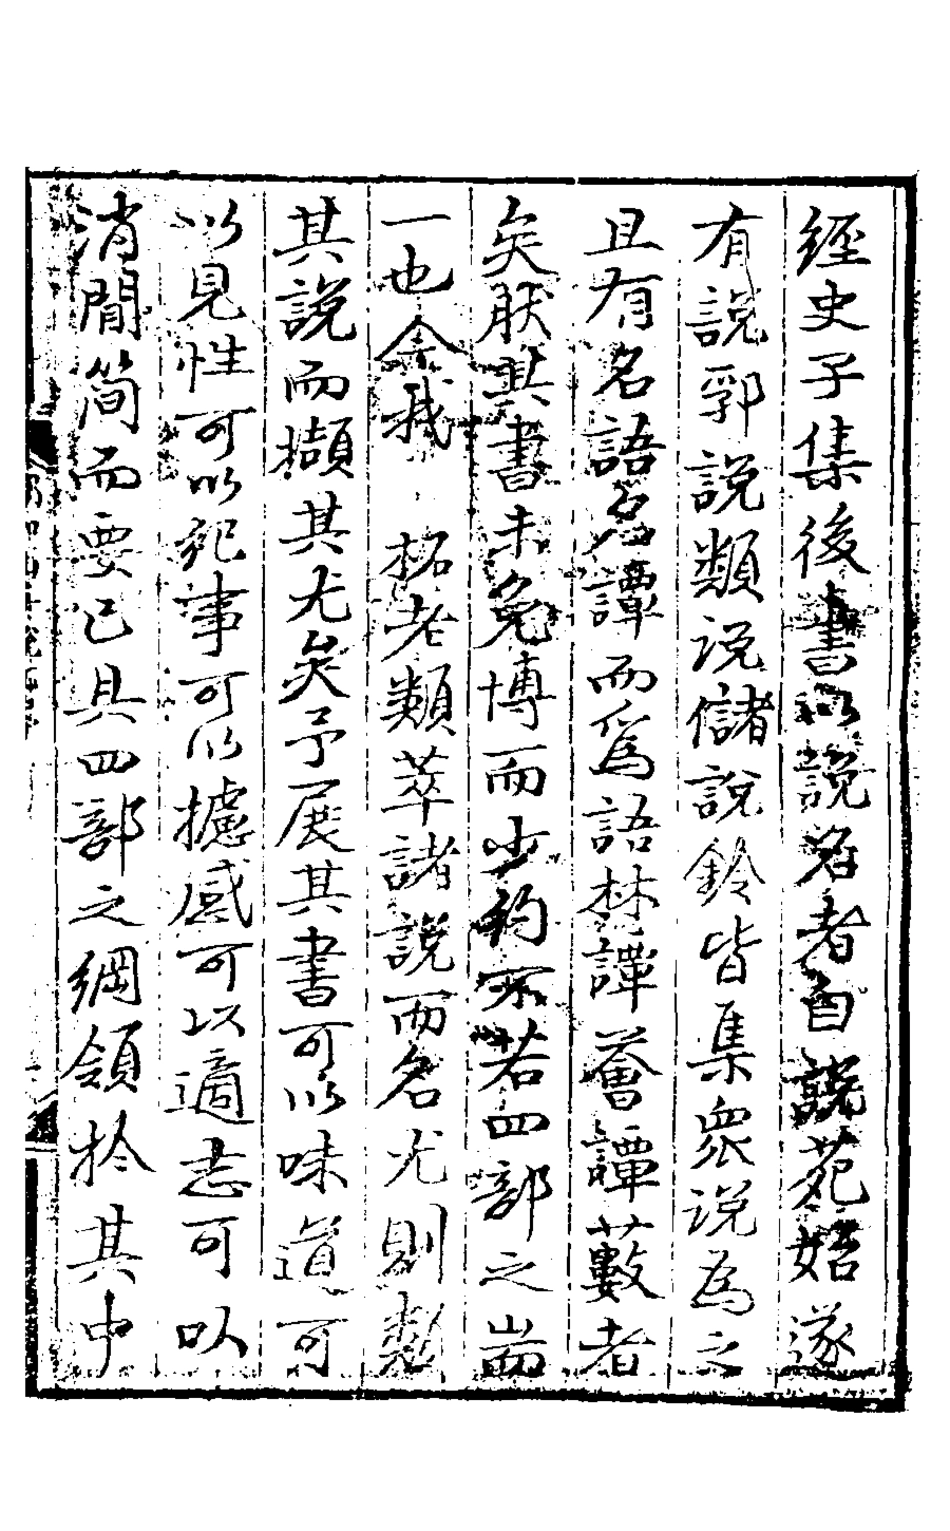 經史子集後書以説名者自說苑始遂
有説郛說類说儲說鈴皆集眾说為之
且有名語名譚而爲語林譚薈譚藪者
矣肰其書未免博而少約不若四部之耑
一也余我 柘老類萃諸說而名尤則數
其說而擷其尤矣予展其書可以味道可
以見性可以紀事可以攄感可以適志可以
消閒简而要已具四部之綱領扵其中